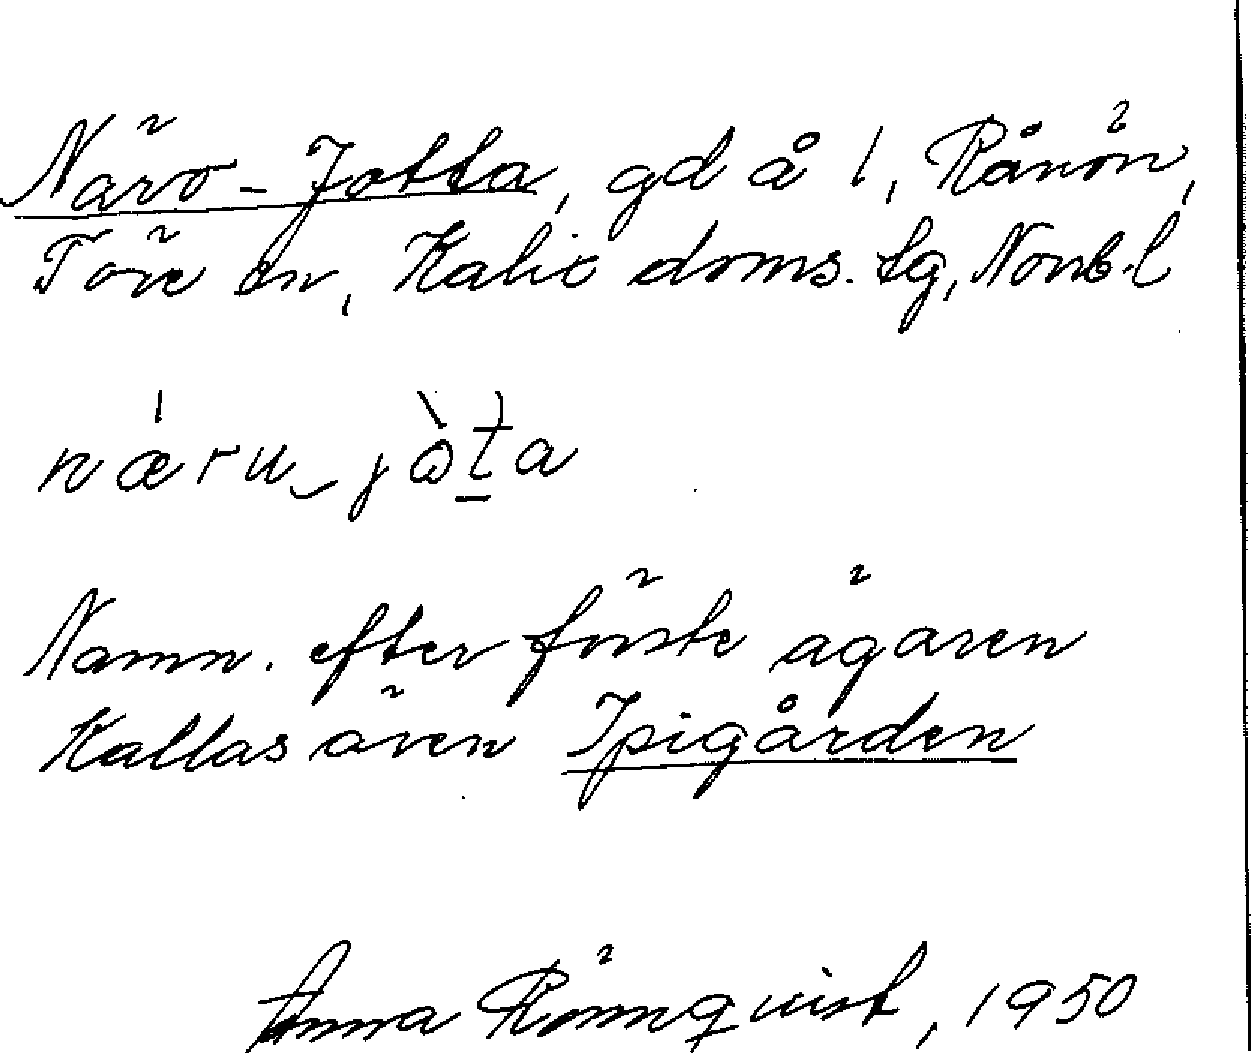 Näro-Jotta, gd å 1, Rånön,
Töre sn, Kalix doms. tg, Norrb. l
næru jòta
Namn. efter förste ägaren
Kallas även Ipigården
Anna Rönnquist, 1950